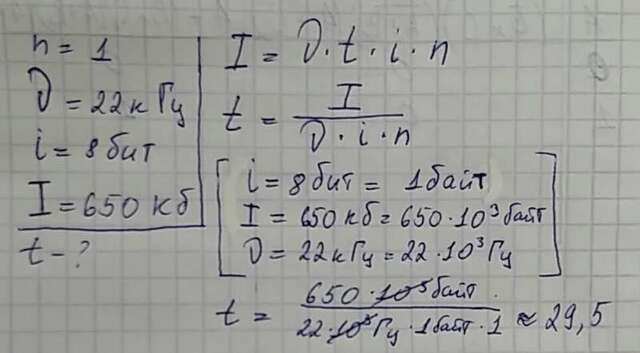 n = 1
D = 22 кГц
i = 8 бит
I = 650 кб
t - ?
I = D · t · i · n
t = I / D · i · n
i = 8 бит = 1 байт
I = 650 кб = 650 · 10³ байт
D = 22 кГц = 22 · 10³ Гц
t = 650 · 10³ байт / 22 · 10³ Гц · 1 байт · 1 ≈ 29,5